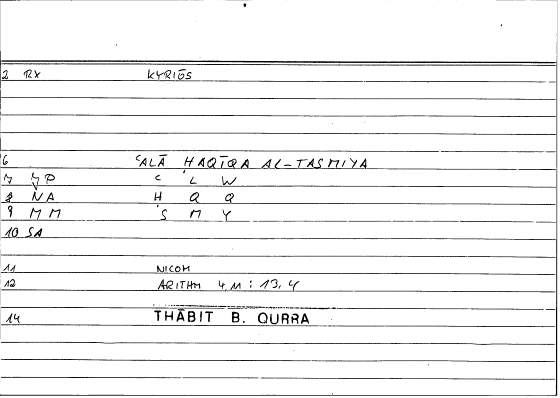 2 RX KYRIŌS
6 ʿALĀ ḤAQĪQA AL-TASMIYA
7 ʿL W
8 NA Ḥ Q Q
9 MM S M Y
10 SA
11 NICOM
12 ARITHM 4,11 : 13,4
14 THĀBIT B. QURRA